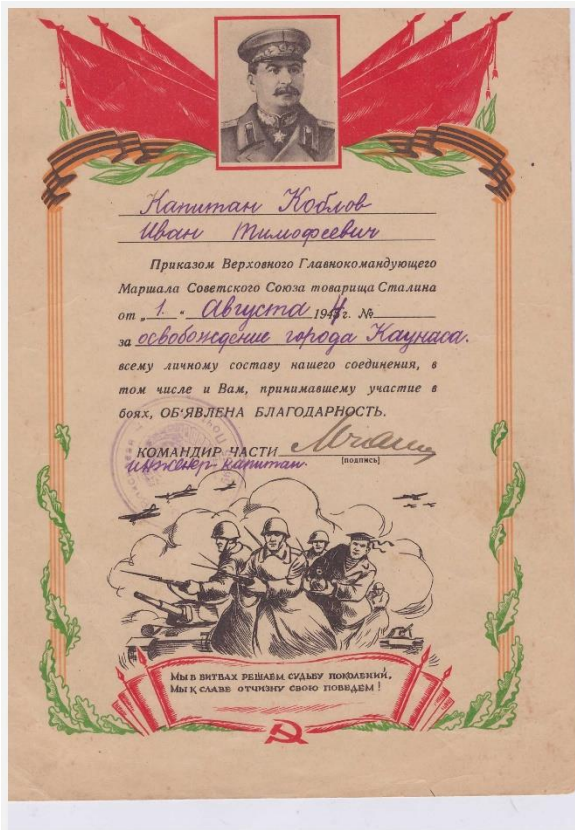 Капитан Коблов
Иван Тимофеевич
Приказом Верховного Главнокомандующего
Маршала Советского Союза товарища Сталина
от „ 1. " Августа 1944 г. №
за освобождение города Каунаса.
всему личному составу нашего соединения, в
том числе и Вам, принимавшему участие в
боях, ОБ'ЯВЛЕНА БЛАГОДАРНОСТЬ.
КОМАНДИР ЧАСТИ
(подпись)
инженер-капитан
МЫ В БИТВАХ РЕШАЕМ СУДЬБУ ПОКОЛЕНИЙ,
МЫ К СЛАВЕ ОТЧИЗНУ СВОЮ ПОВЕДЕМ!